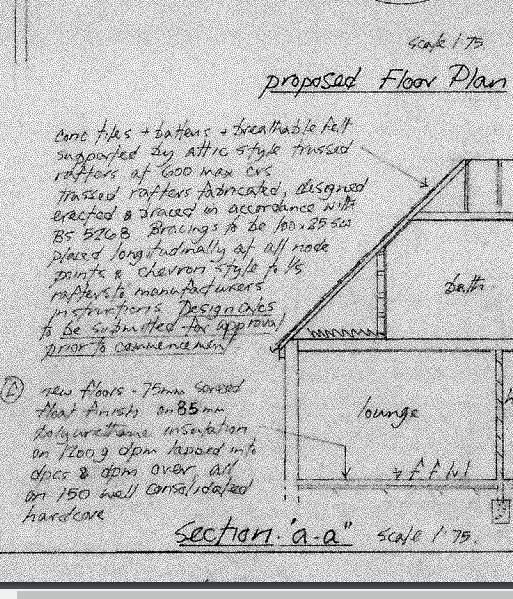 scale 1:75
proposed Floor Plan
conc tiles + battens + breathable felt
supported by attic style trussed
rafters at 600 max crs
trussed rafters fabricated, designed
erected & braced in accordance with
BS 5268 Bracings to be 100x25 sw
placed longitudinally at all node
points & chevron style to
rafters to manufacturers
instructions Design calcs
to be submitted for approval
prior to commencement
bath
new floors - 75mm screed
float finish on 85mm
polyurethane insulation
on 1200g dpm lapped into
dpcs & dpm over
on 150 well consolidated
hardcore
lounge
F.F.L
Section "a-a" Scale 1:75.